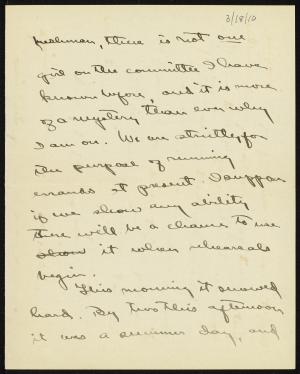 3/18/10
freshman, there is not one
girl on the committee I have
known before, and it is more
of a mystery than ever why
I am on. We are strictly for
the purpose of running
errands at present. I suppose
if we show any ability
there will be a chance to use
show it when rehearsals
begin.
This morning it snowed
hard. By two this afternoon
it was a summer day, and